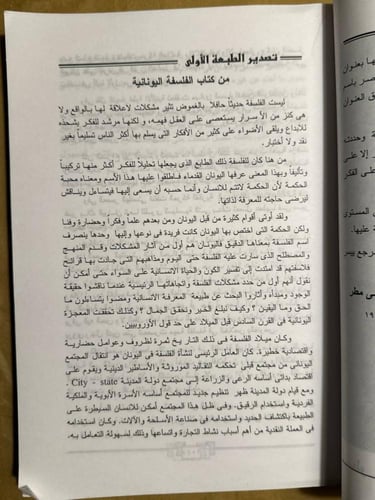 تصدير الطبعة الأولى
من كتاب الفلسفة اليونانية
ليست الفلسفة حديثا حافلا بالغموض تثير مشكلات لاعلاقة لها بالواقع ولا
هى كنز من الأسرار يستعصى على العقل فهمه، ولكنها مرشد للفكر يشحذه
للإبداع ويلقى الأضواء على كثير من الأفكار التى يسلم بها أكثر الناس تسليما بغير
نقد ولا اختبار.
من هنا كان للفلسفة ذلك الطابع الذى يجعلها تحليلا للفكر أكثر منها تركيبا
وتأليفا وبهذا المعنى عرفها اليونان القدماء فأطلقوا عليها هذا الأسم ومعناه محبة
الحكمة لأن الحكمة لاتتم للانسان وإنما حسبه أن يسعى إليها فيتساءل ويناقش
ليرضى حاجته للمعرفة لذاتها.
ولقد أوتى أقوام كثيرة من قبل اليونان ومن بعدهم علما وفكرا وحضارة وفنا
ولكن الحكمة التى اختص بها اليونان كانت فريدة فى نوعها وإليها وحدها ينصرف
اسم الفلسفة بمعناها الدقيق فاليونان هم أول من أثار المشكلات وقدم المنهج
والمصطلح الذى سارت عليه الفلسفة حتى اليوم ومذاهبهم التى جادت بها قرائح
فلاسفتهم قد امتدت إلى تفسير الكون والحياة الانسانية على السواء حتى أمكن أن
نقول أنهم أول من حدد مشكلات الفلسفة واتجاهاتها الرئيسية عندما ناقشوا حقيقة
الوجود ومبدأه وأثاروا البحث عن طبيعة المعرفة الانسانية ومضوا يتساءلون ما
الحق وما اليقين ؟ وكيف نبلغ الخير ونحقق الجمال ؟ وكذلك تحققت المعجزة
اليونانية فى القرن السادس قبل الميلاد على حد قول الأوروبيين.
وكان ميلاد الفلسفة فى ذلك التاريخ ثمرة لظروف وعوامل حضارية
واقتصادية خطيرة. كان العامل الرئيسى لنشأة الفلسفة فى اليونان هو انتقال المجتمع
اليونانى من مجتمع قبلى تحكمه التقاليد الموروثة والأساطير الدينية ويقوم على
اقتصاد بدائى أساسه الرعى والزراعة إلى مجتمع دولة المدينة City - state .
ومع قيام دولة المدينة ظهر تنظيم جديد للمجتمع أساسه الأسرة الأبوية والملكية
الفردية واستخدام الرقيق. وفى ظل هذا المجتمع أمكن للانسان السيطرة على
الطبيعة باكتشاف الحديد واستخدامه فى صناعة الأسلحة والآلات. وكان استخدامه
فى العملة النقدية من أهم أسباب نشاط التجارة واتساعها وذلك لسهولة التعامل به.